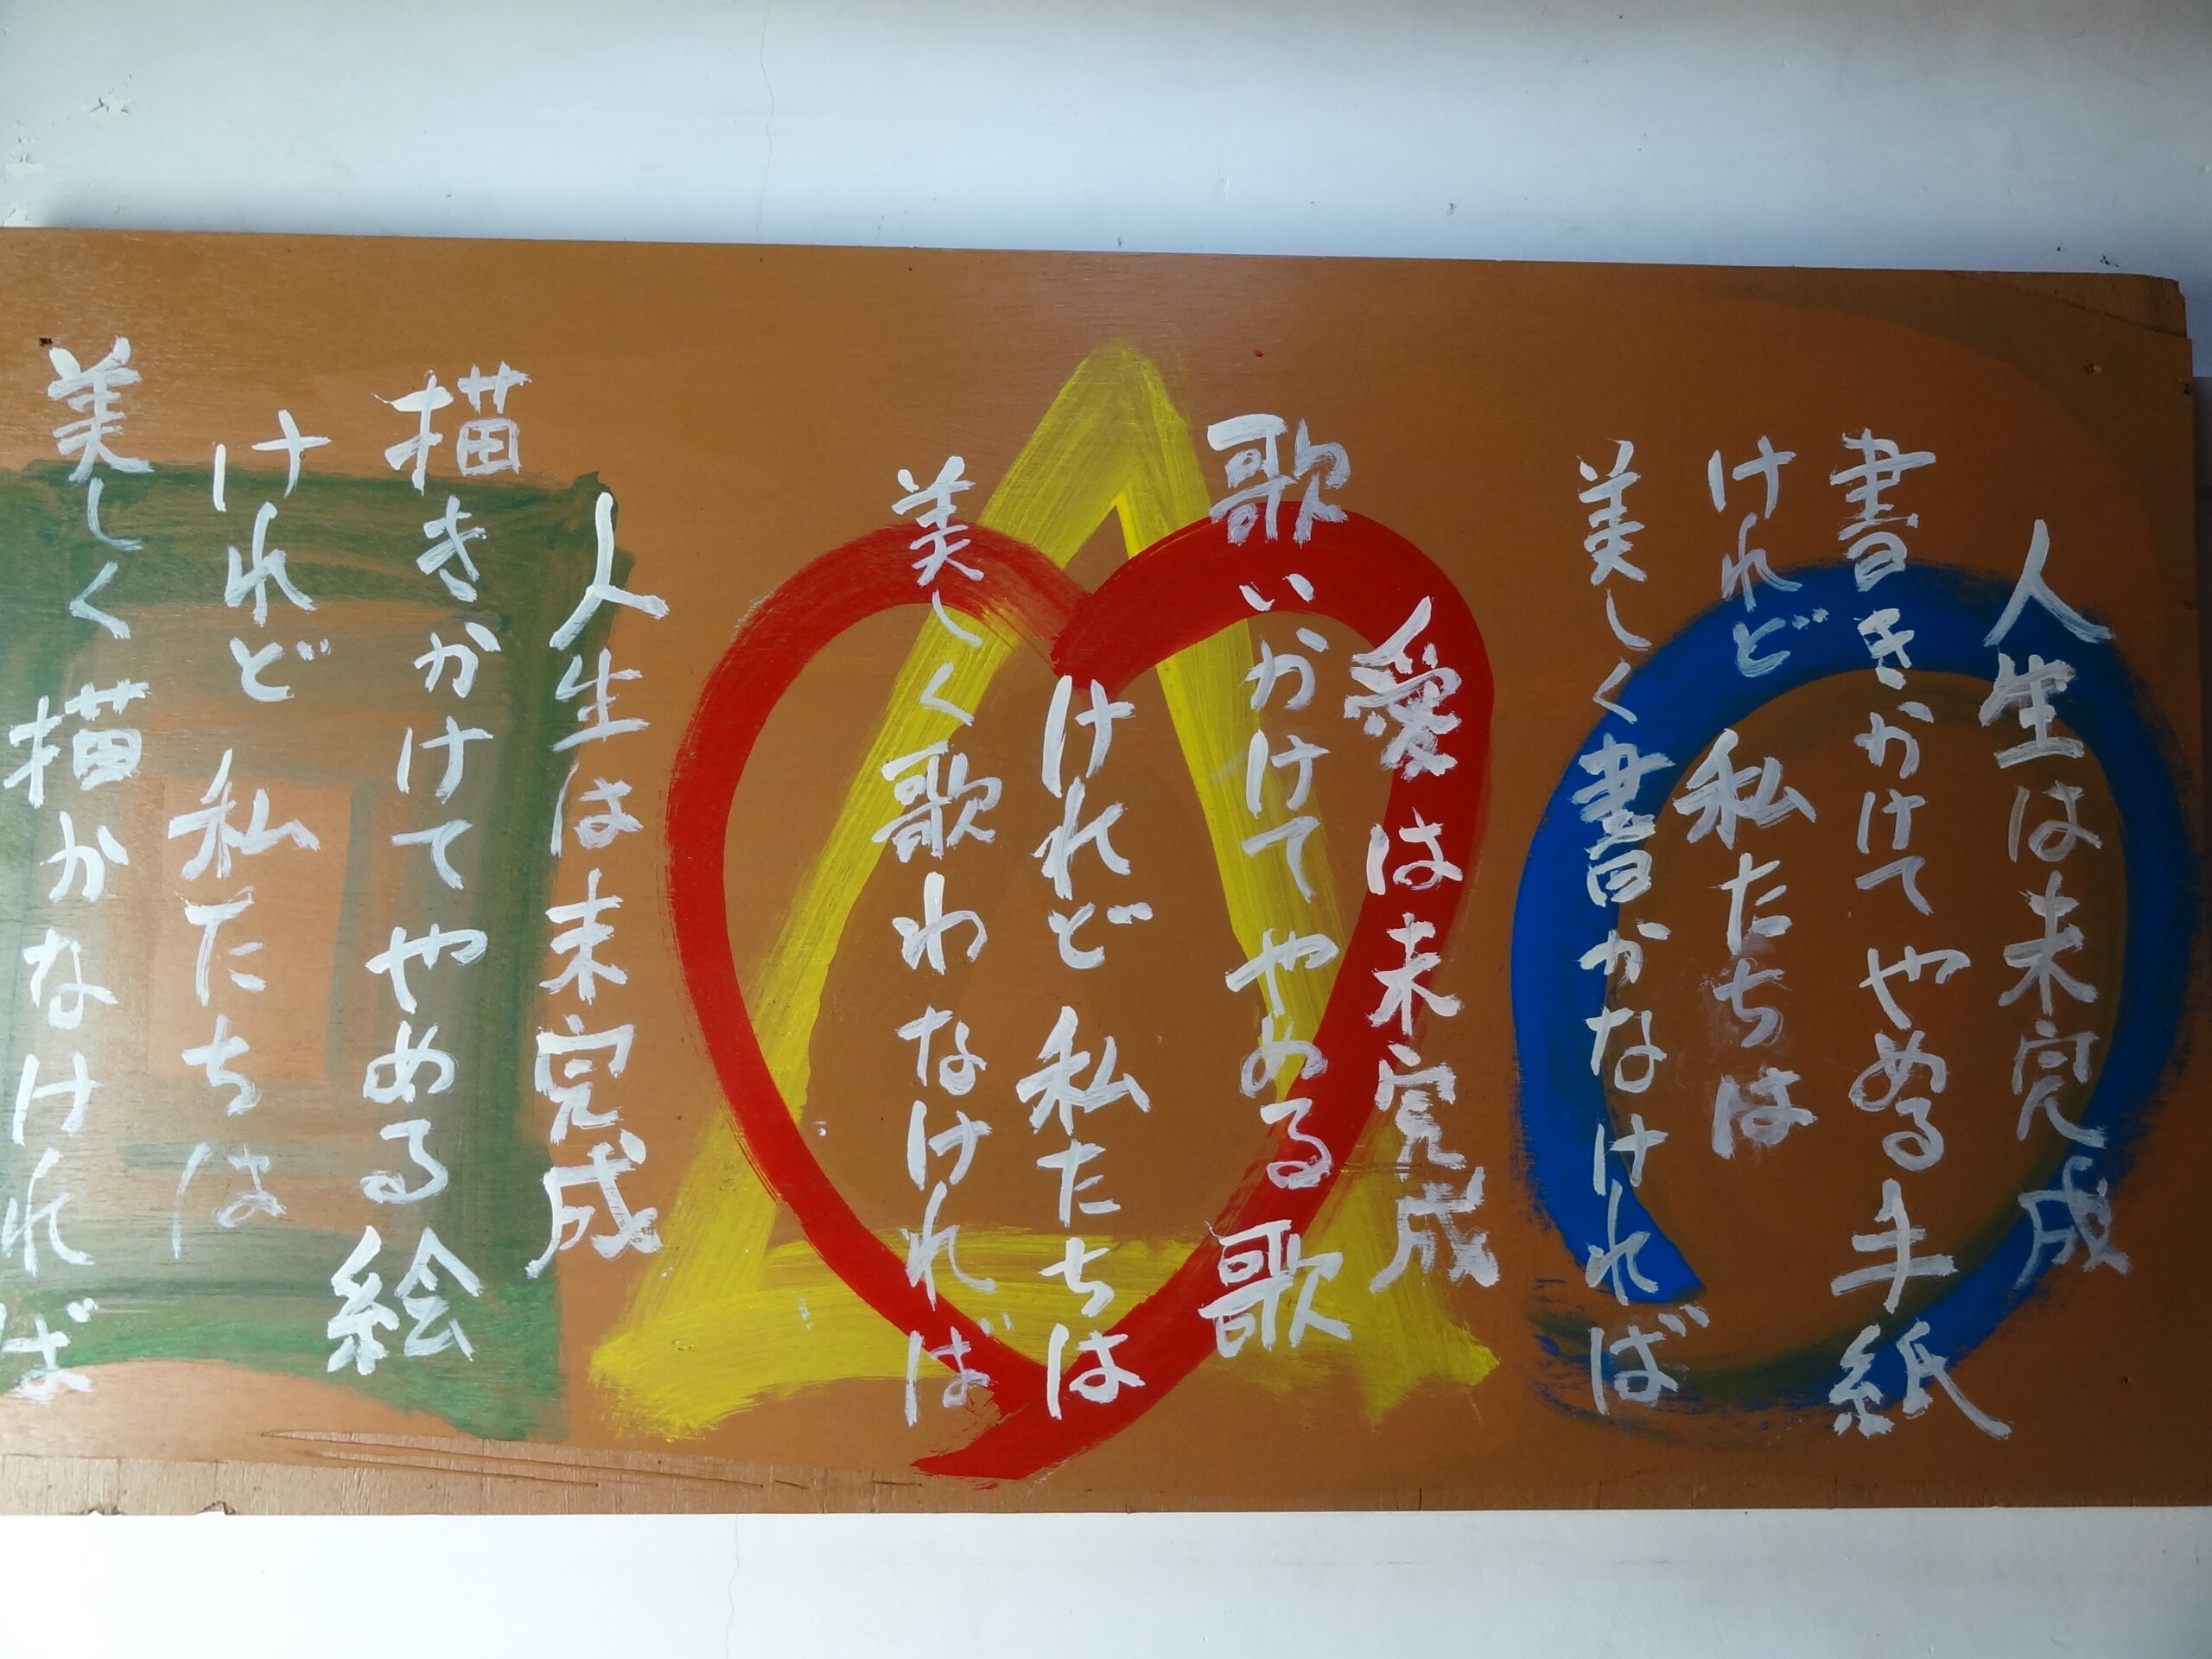 人生は未完成
書きかけてやめる手紙
けれど 私たちは
美しく書かなければ
愛は未完成
歌いかけて やめる歌
けれど 私たちは
美しく歌わなければ
人生は未完成
描きかけて やめる絵
けれど 私たちは
美しく描かなければ